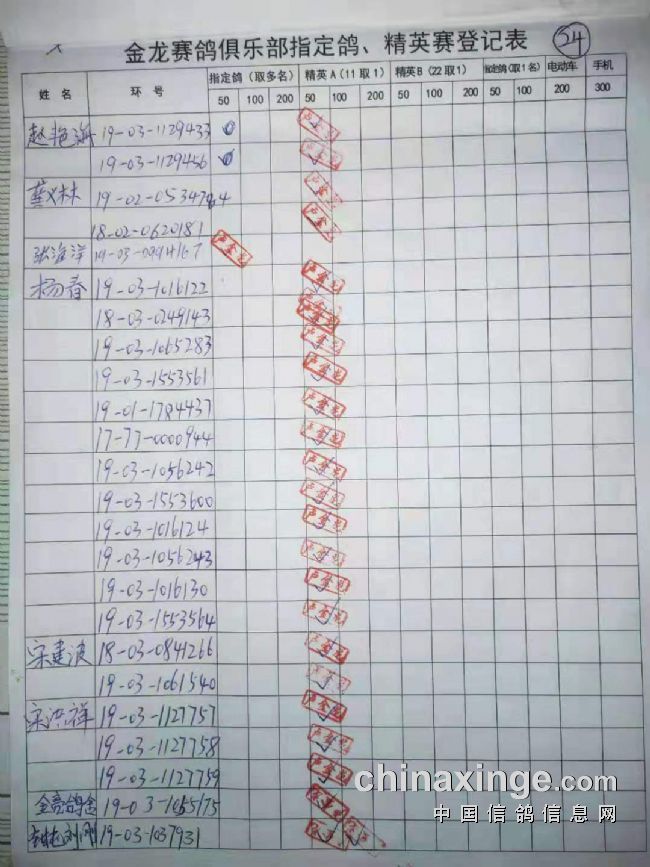 金龙赛鸽俱乐部指定鸽、精英赛登记表 24
姓名 环号 指定鸽（取多名） 精英A（11取1） 精英B（22取1） 指定鸽（取1名） 电动车 手机
50 100 200 50 100 200 50 100 200 50 100 200 300
赵艳海 19-03-1129433
19-03-1129456
19-02-053474
18-02-0620181
张海洋 19-03-0994167
杨春 19-03-1016122
18-03-0249143
19-03-1065283
19-03-1553561
19-01-1784437
17-77-0000944
19-03-1056242
19-03-1553600
19-03-1016124
19-03-1056243
19-03-1016130
19-03-1553564
宋建波 18-03-0841266
19-03-1061540
宋洪祥 19-03-1127757
19-03-1127758
19-03-1127759
19-03-1055175
19-03-1037931
chinaxinge.com
中国信鸽信息网